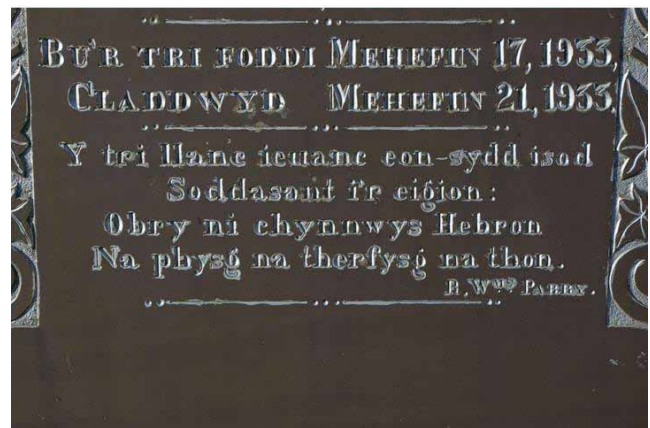 BU'R TRI FODDI MEHEFIN 17, 1933,
CLADDWYD MEHEFIN 21, 1933.
Y tri llanc ieuanc eon-sydd isod
Soddasant i'r eigion:
Obry ni chynnwys Hebron
Na physg na therfysg na thon.
R. Wms PARRY.